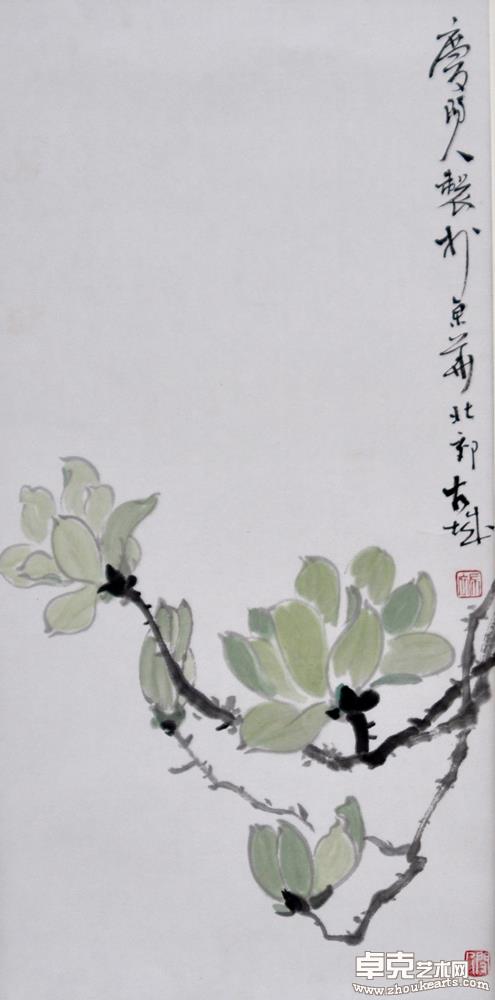 廣明人製於京華北郭古城
卓克艺术网
www.zhoukearts.com